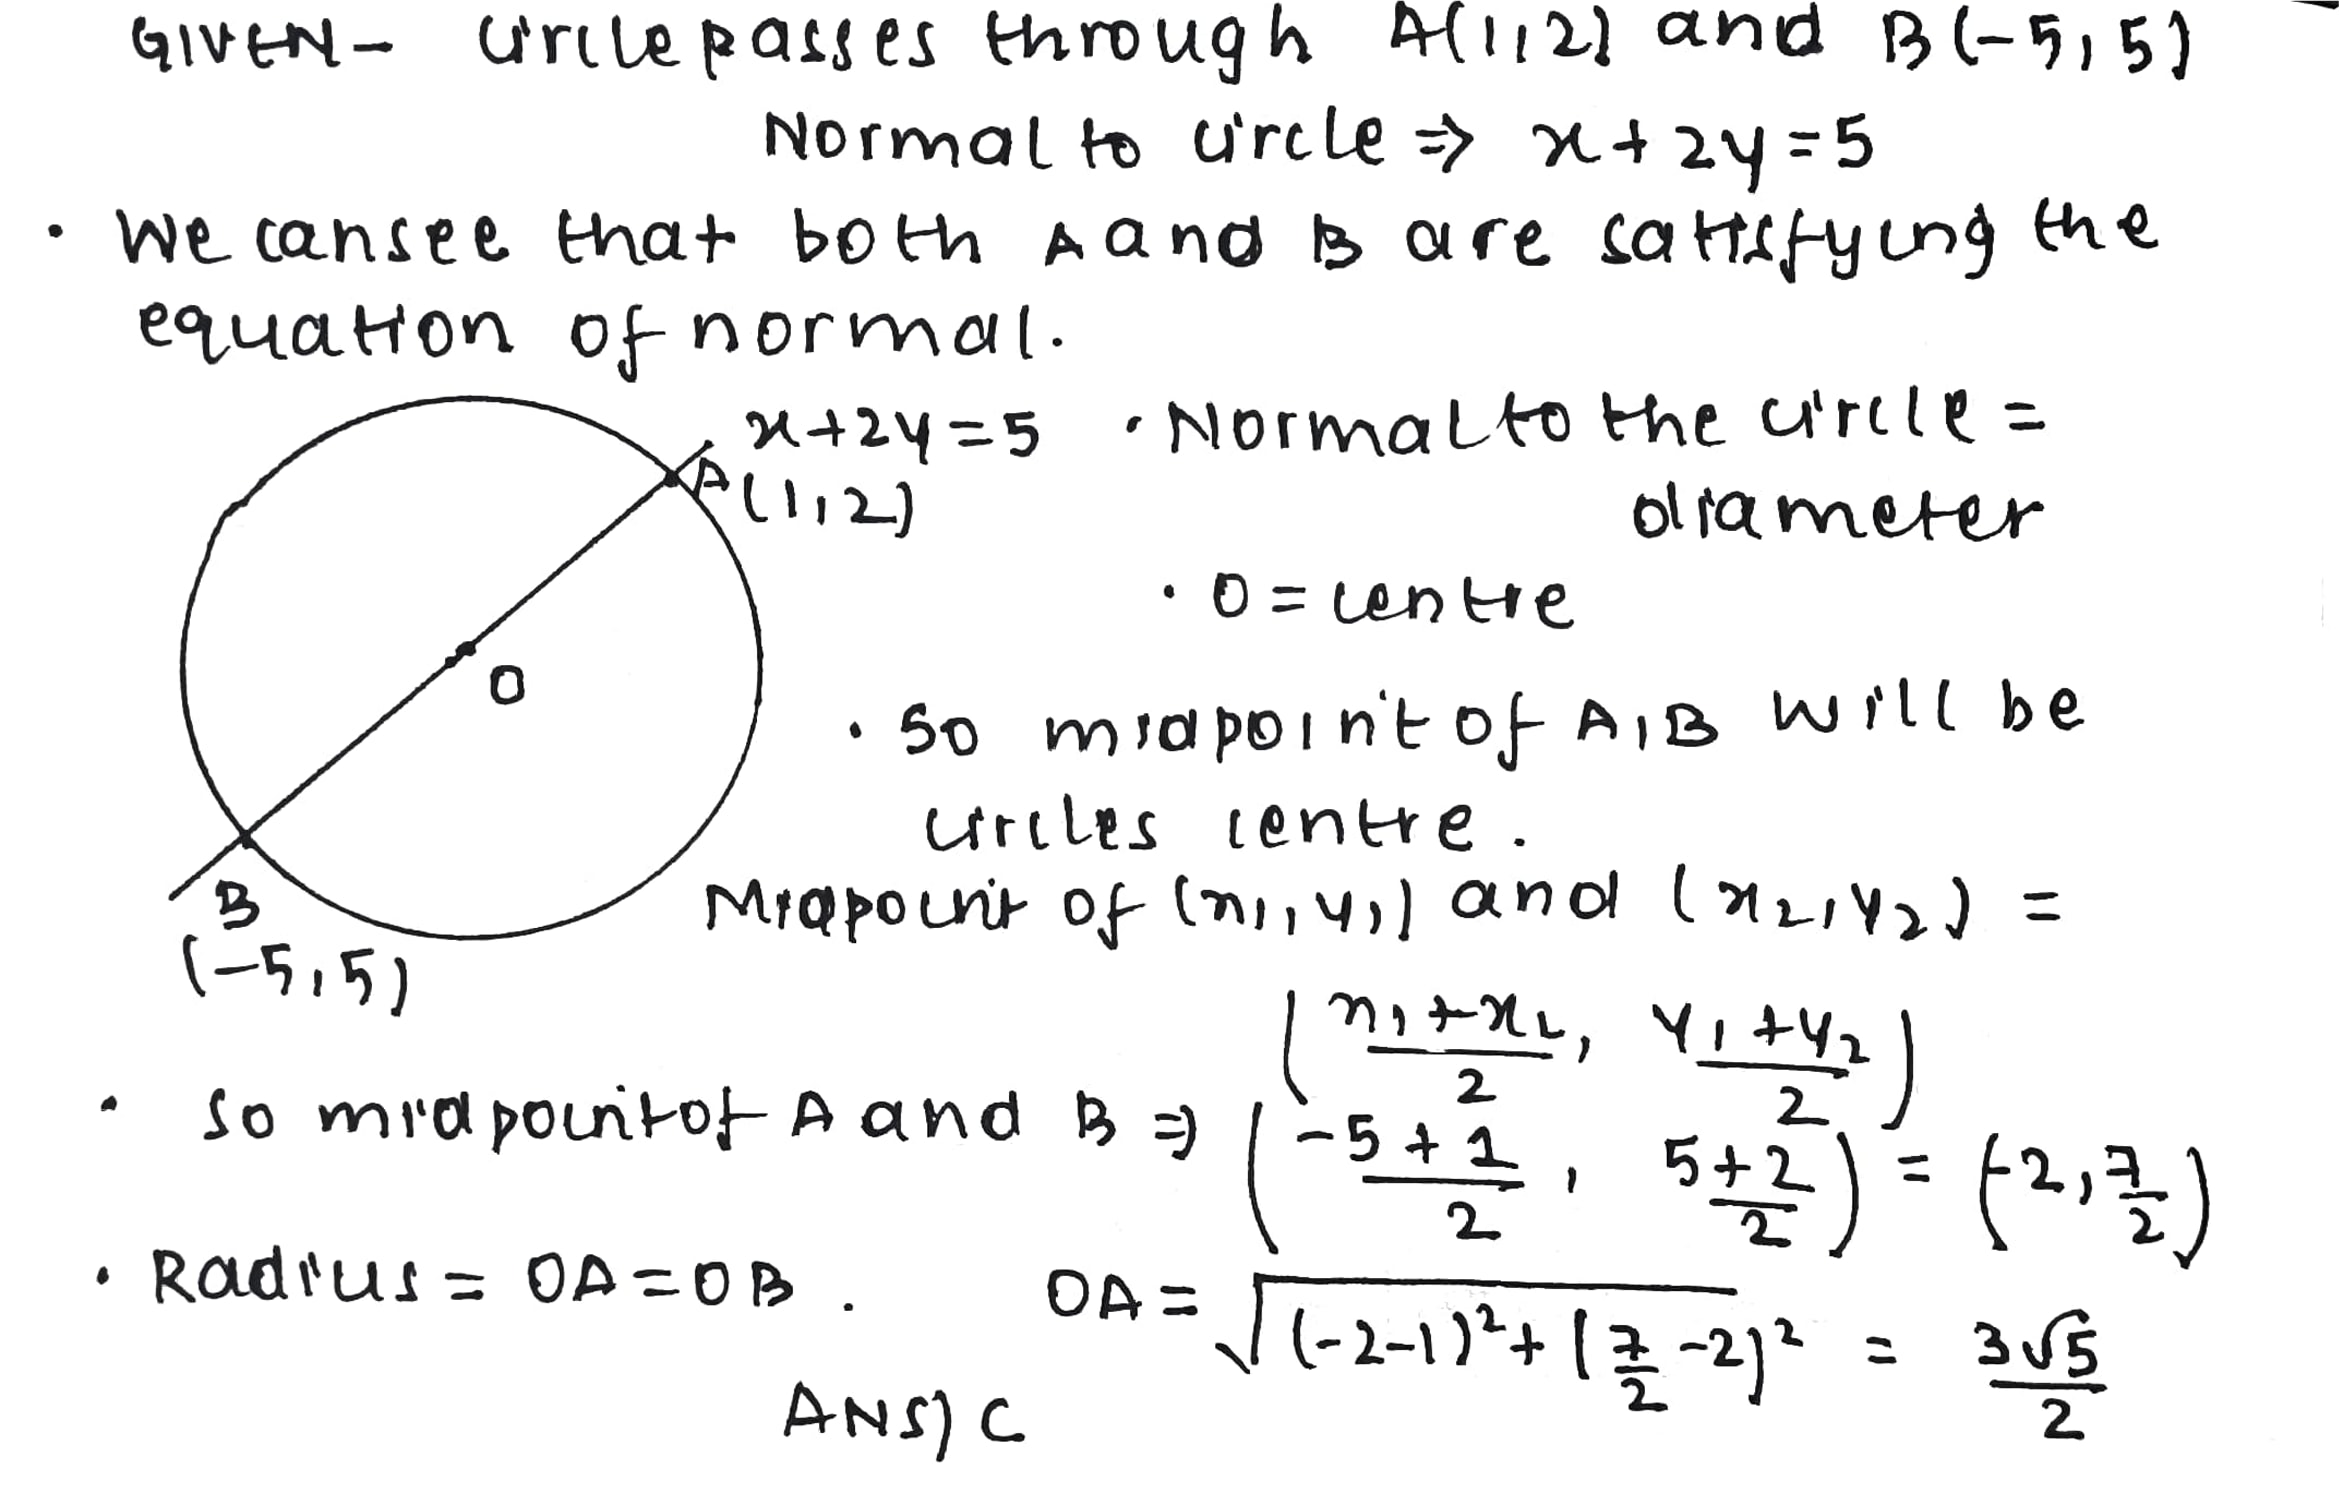 GIVEN - Circle passes through A(1,2) and B(-5,5)
Normal to circle ⇒ x+2y=5
• We can see that both A and B are satisfying the
equation of normal.
x+2y=5
A(1,2)
• Normal to the circle =
diameter
• O = centre
O
• So midpoint of A,B will be
circles centre.
B
(-5,5)
Midpoint of (x1,y1) and (x2,y2) =
((x1+x2)/2, (y1+y2)/2)
• So midpoint of A and B ⇒ ((-5+1)/2, (5+2)/2) = (-2, 7/2)
• Radius = OA = OB. OA = √((-2-1)²+(7/2-2)²) = 3√5/2
ANS) C